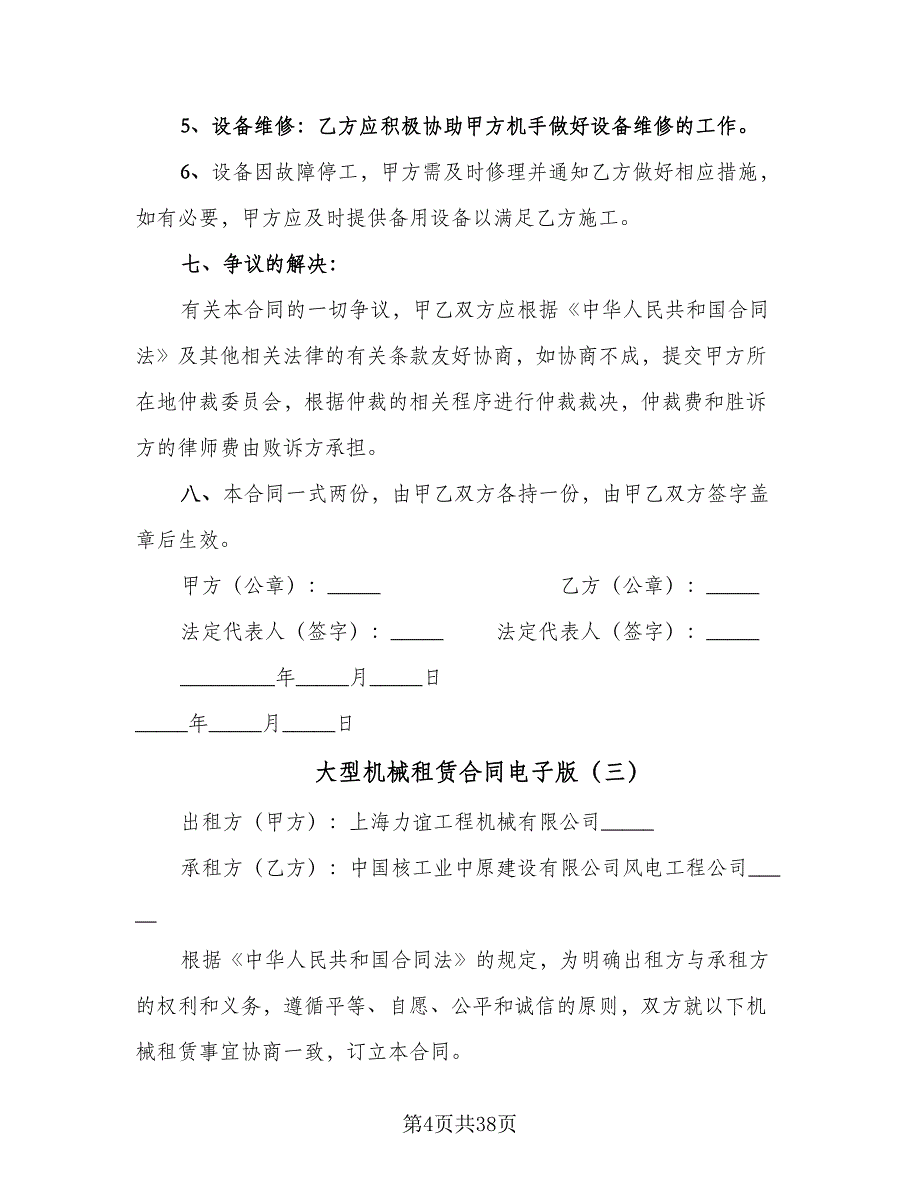 5、设备维修：乙方应积极协助甲方机手做好设备维修的工作。
6、设备因故障停工，甲方需及时修理并通知乙方做好相应措施，
如有必要，甲方应及时提供备用设备以满足乙方施工。
七、争议的解决：
有关本合同的一切争议，甲乙双方应根据《中华人民共和国合同
法》及其他相关法律的有关条款友好协商，如协商不成，提交甲方所
在地仲裁委员会，根据仲裁的相关程序进行仲裁裁决，仲裁费和胜诉
方的律师费由败诉方承担。
八、本合同一式两份，由甲乙双方各持一份，由甲乙双方签字盖
章后生效。
甲方（公章）：_____ 乙方（公章）：_____
法定代表人（签字）：_____ 法定代表人（签字）：_____
_________年_____月_____日
_____年_____月_____日
大型机械租赁合同电子版（三）
出租方（甲方）：上海力谊工程机械有限公司_____
承租方（乙方）：中国核工业中原建设有限公司风电工程公司___
__
根据《中华人民共和国合同法》的规定，为明确出租方与承租方
的权利和义务，遵循平等、自愿、公平和诚信的原则，双方就以下机
械租赁事宜协商一致，订立本合同。
第4页共38页